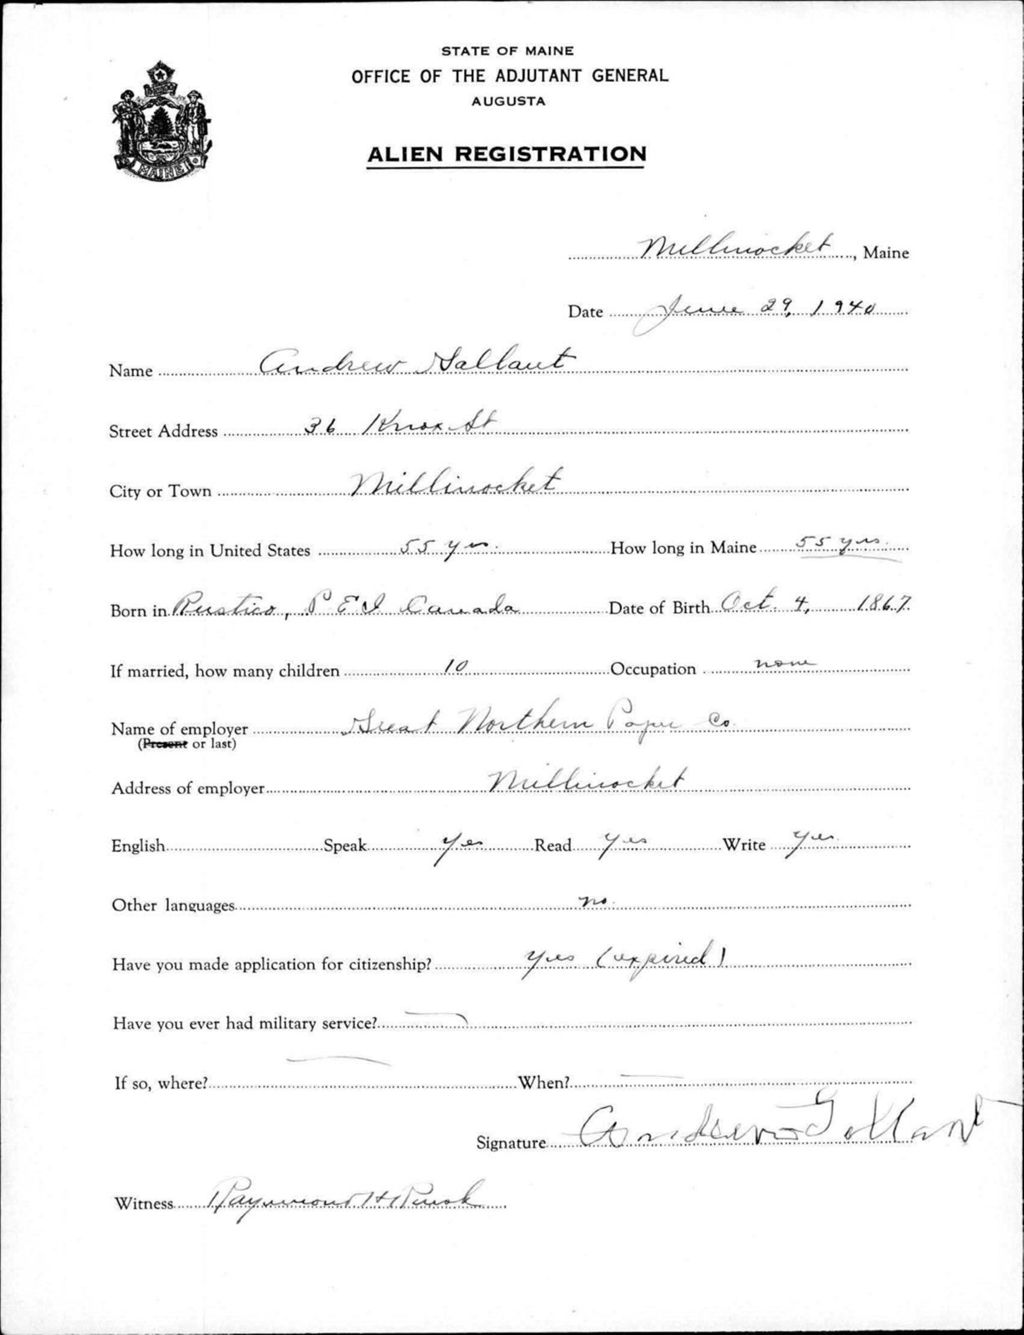 STATE OF MAINE
OFFICE OF THE ADJUTANT GENERAL
AUGUSTA
ALIEN REGISTRATION
MAINE
Millinocket, Maine
Date June 29, 1940
Name Andrew Gallant
Street Address 36 Knox St
City or Town Millinocket
How long in United States 55 yrs. How long in Maine 55 yrs.
Born in Rustico, P E I Canada Date of Birth Oct. 4, 1867
If married, how many children 10 Occupation none
Name of employer Great Northern Paper Co.
(Present or last)
Address of employer Millinocket
English Speak Yes Read Yes Write Yes
Other languages no.
Have you made application for citizenship? Yes (expired)
Have you ever had military service? —
If so, where? — When? —
Signature Andrew Gallant
Witness Raymond H